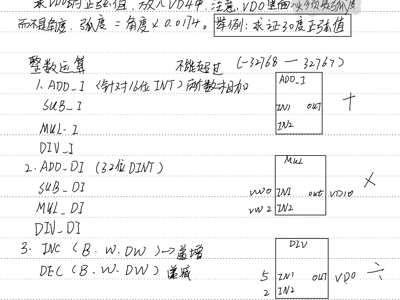 求VD0的正弦值,放入VD4中,注意:VD0里面必须是弧度
而不是角度,弧度=角度×0.0174。举例:求证30度正弦值
整数运算 不能超过 (-32768 — 32767)
1. ADD_I (针对16位INT) 两个数相加
SUB_I
MUL_I
DIV_I
ADD_I
IN1 OUT
IN2
+
2. ADD_DI (32位DINT)
SUB_DI
MUL_DI
DIV_DI
MUL
VW0 IN1 OUT VD10
VW2 IN2
×
3. INC (B. W. DW) → 递增
DEC (B. W. DW) 递减
DIV
5 IN1 OUT VD0
2 IN2
÷